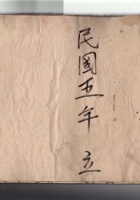 民國五年 立